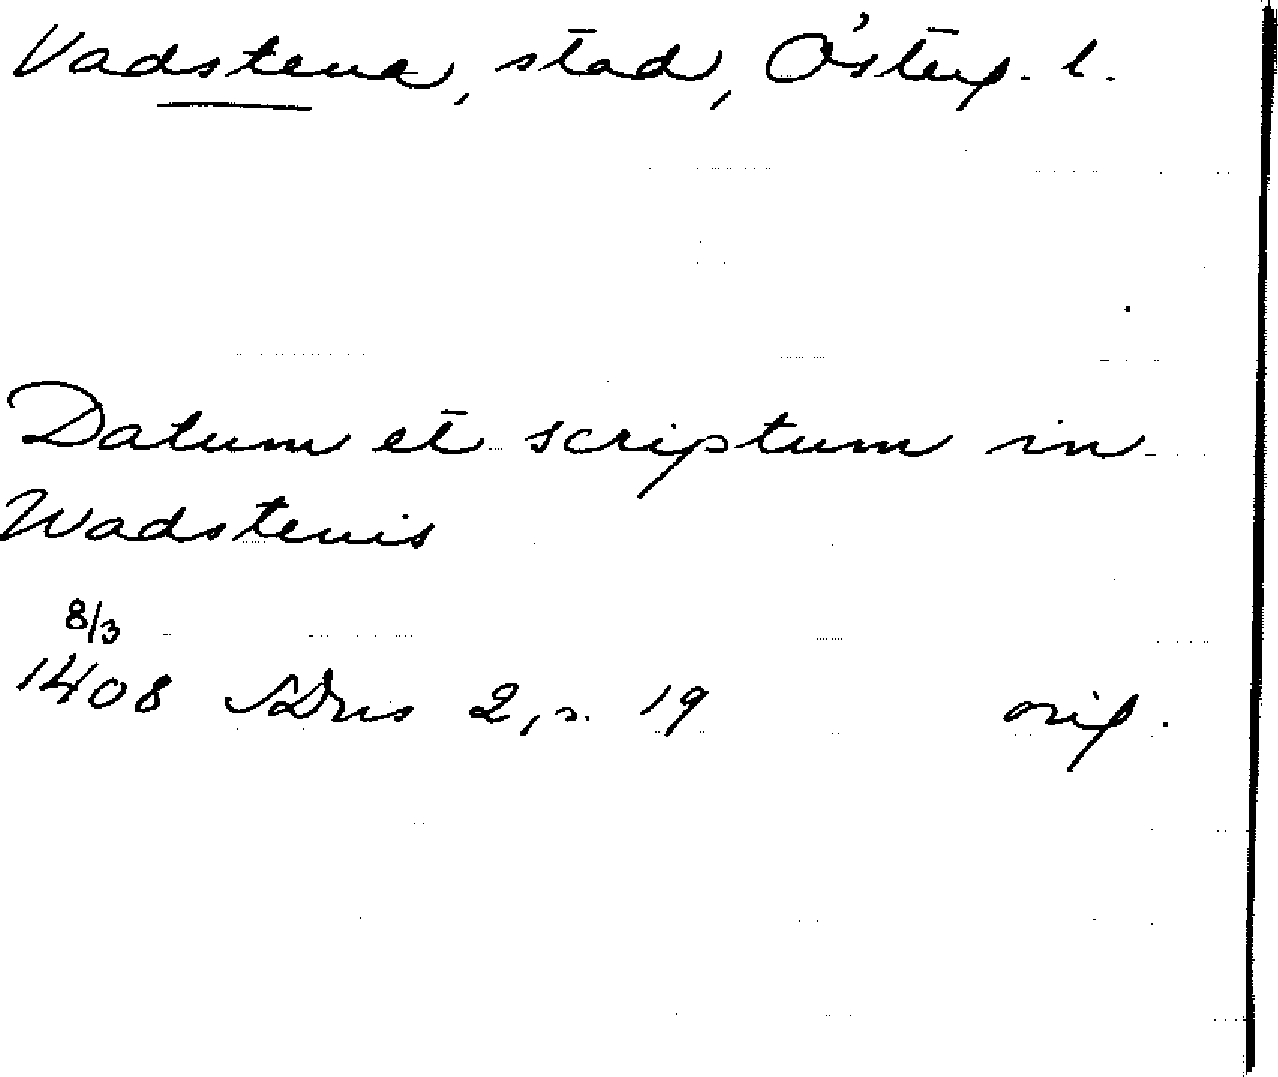 Vadstena, stad, Österg. l.
Datum et scriptum in
Wadstenis
8/3
1408 SDns 2, s. 19 orig.